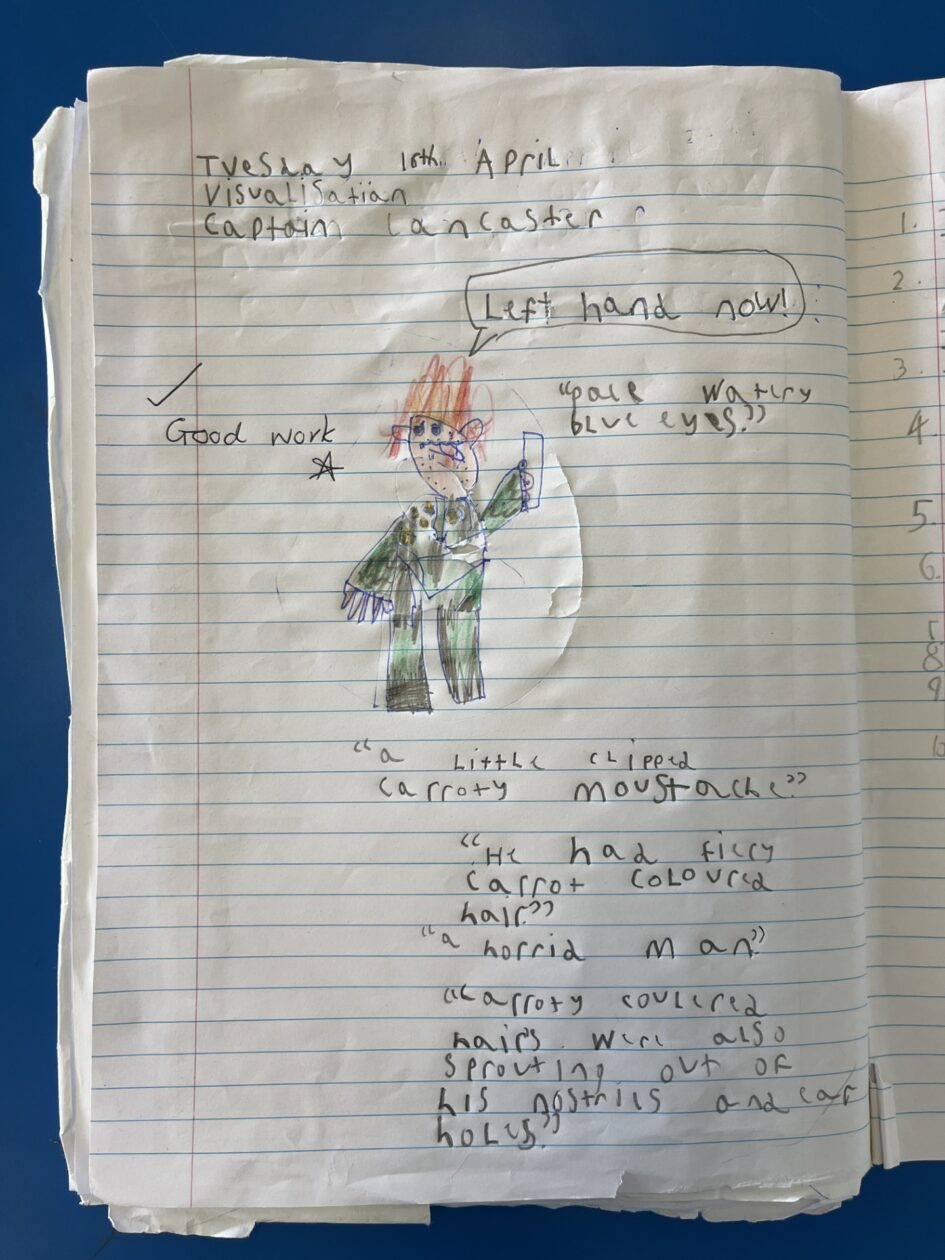 Tuesday 16th April
Visualisation
Captain Lancaster
Left hand now!
"pale watery
blue eyes."
Good work
"a little clipped
carroty moustache"
"He had fiery
carrot coloured
hair"
"a horrid man"
"Carroty coulered
hairs were also
sprouting out of
his nostrils and ear
holes."
1.
2.
3.
4.
5.
6.
8
9